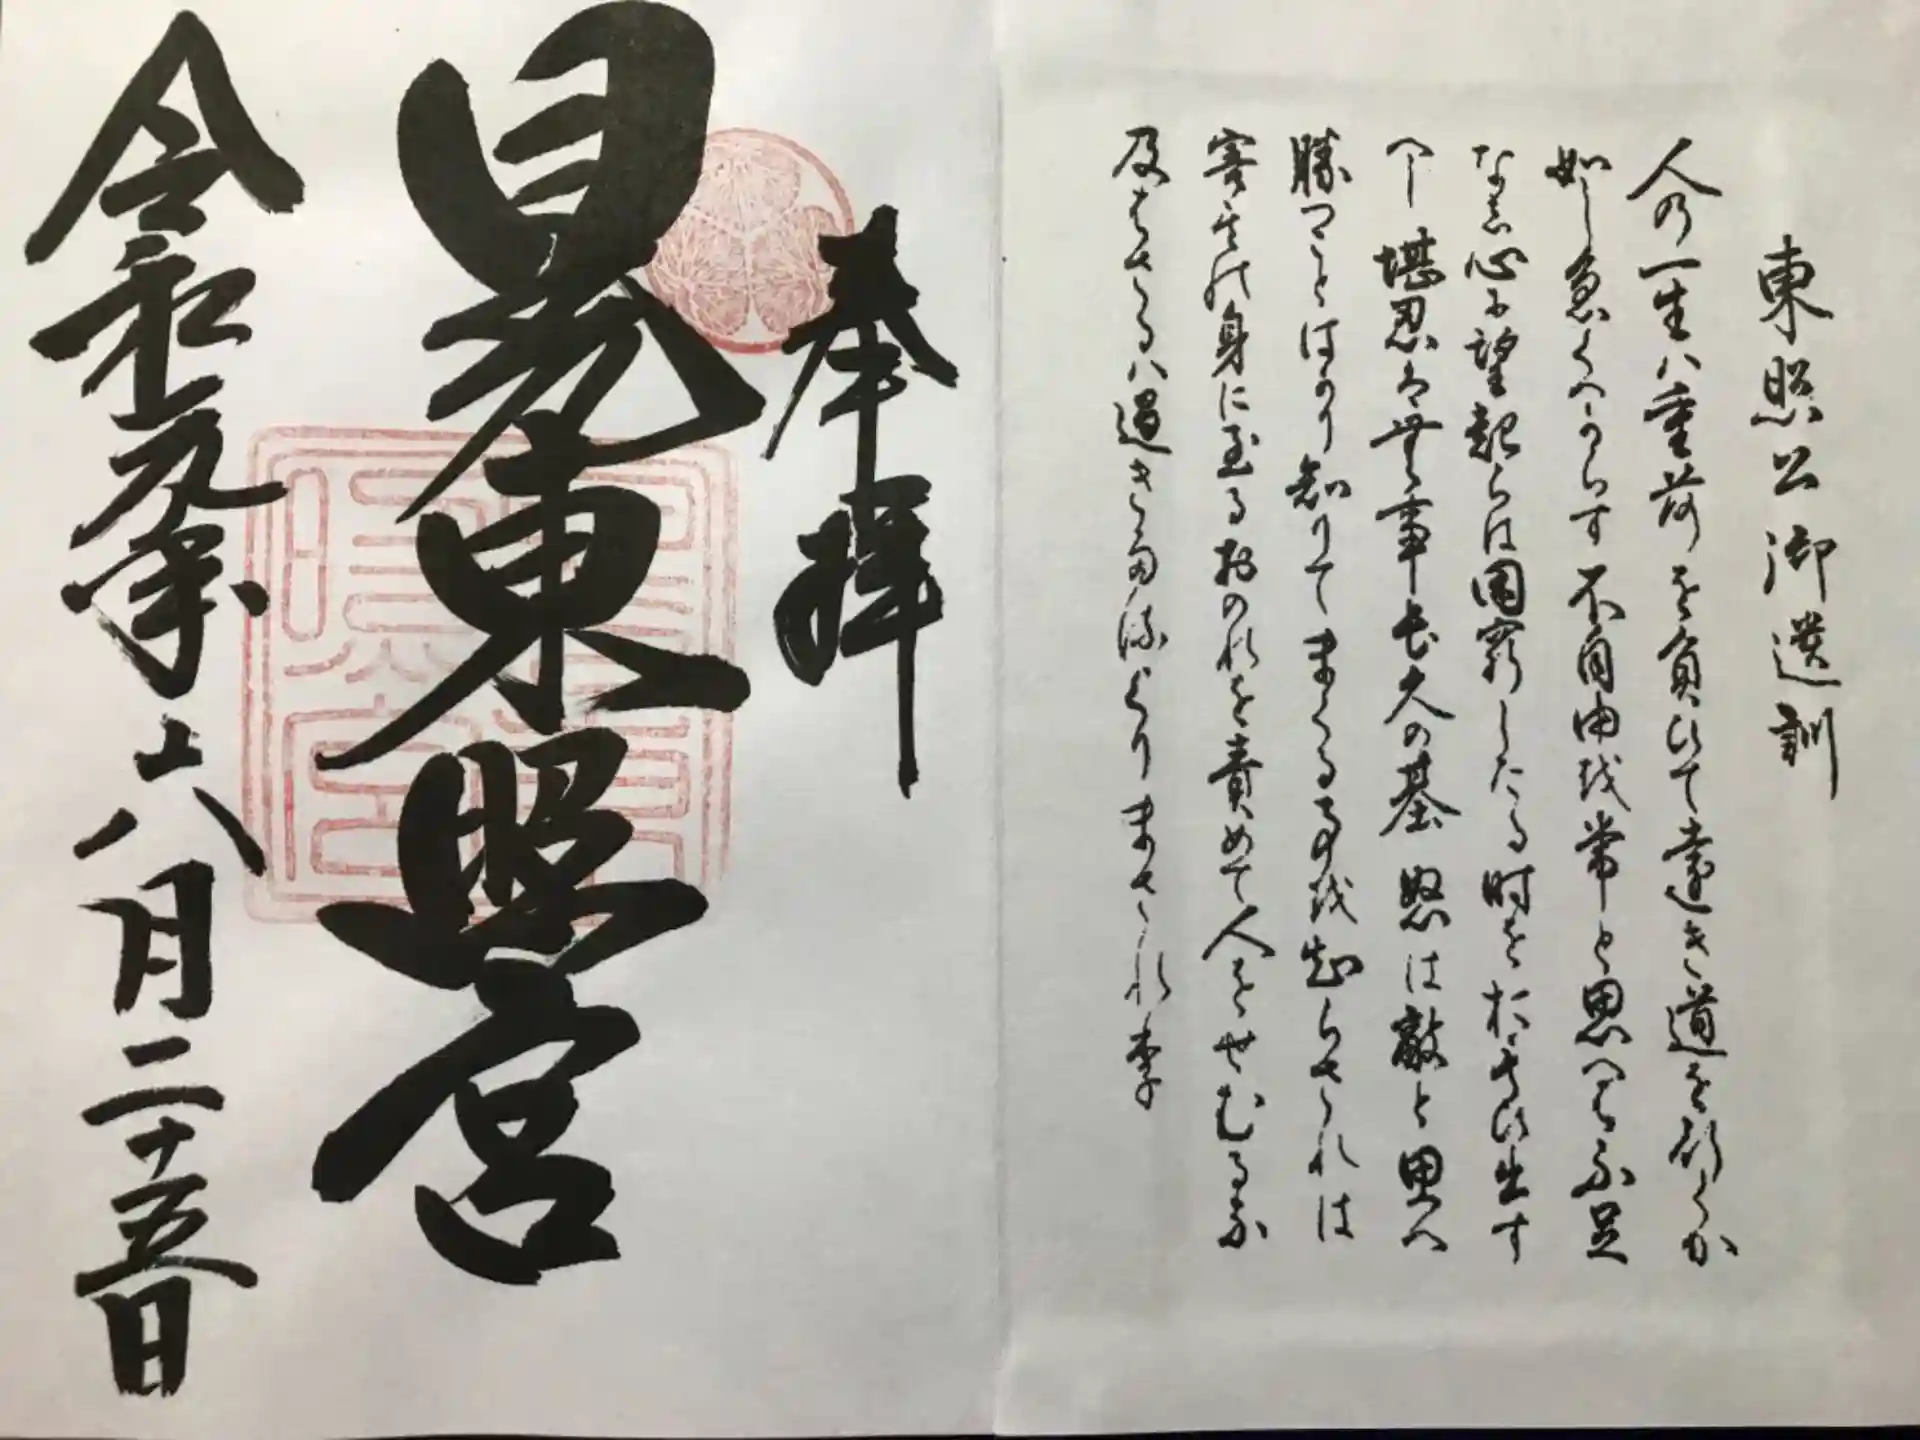 東照公御遺訓
人の一生ハ重荷を負ひて遠き道を行くか
如し急くへからす不自由を常と思へは不足
なし心に望起らは困窮したる時を思ひ出す
へし堪忍は無事長久の基怒は敵と思へ
勝つことはかり知りてまくる事を知らされは
害其の身に至るおのれを責めて人をせむるな
及はさるハ過きたるよりまされり
奉拝
晃東照宮
令和元年六月二十五日